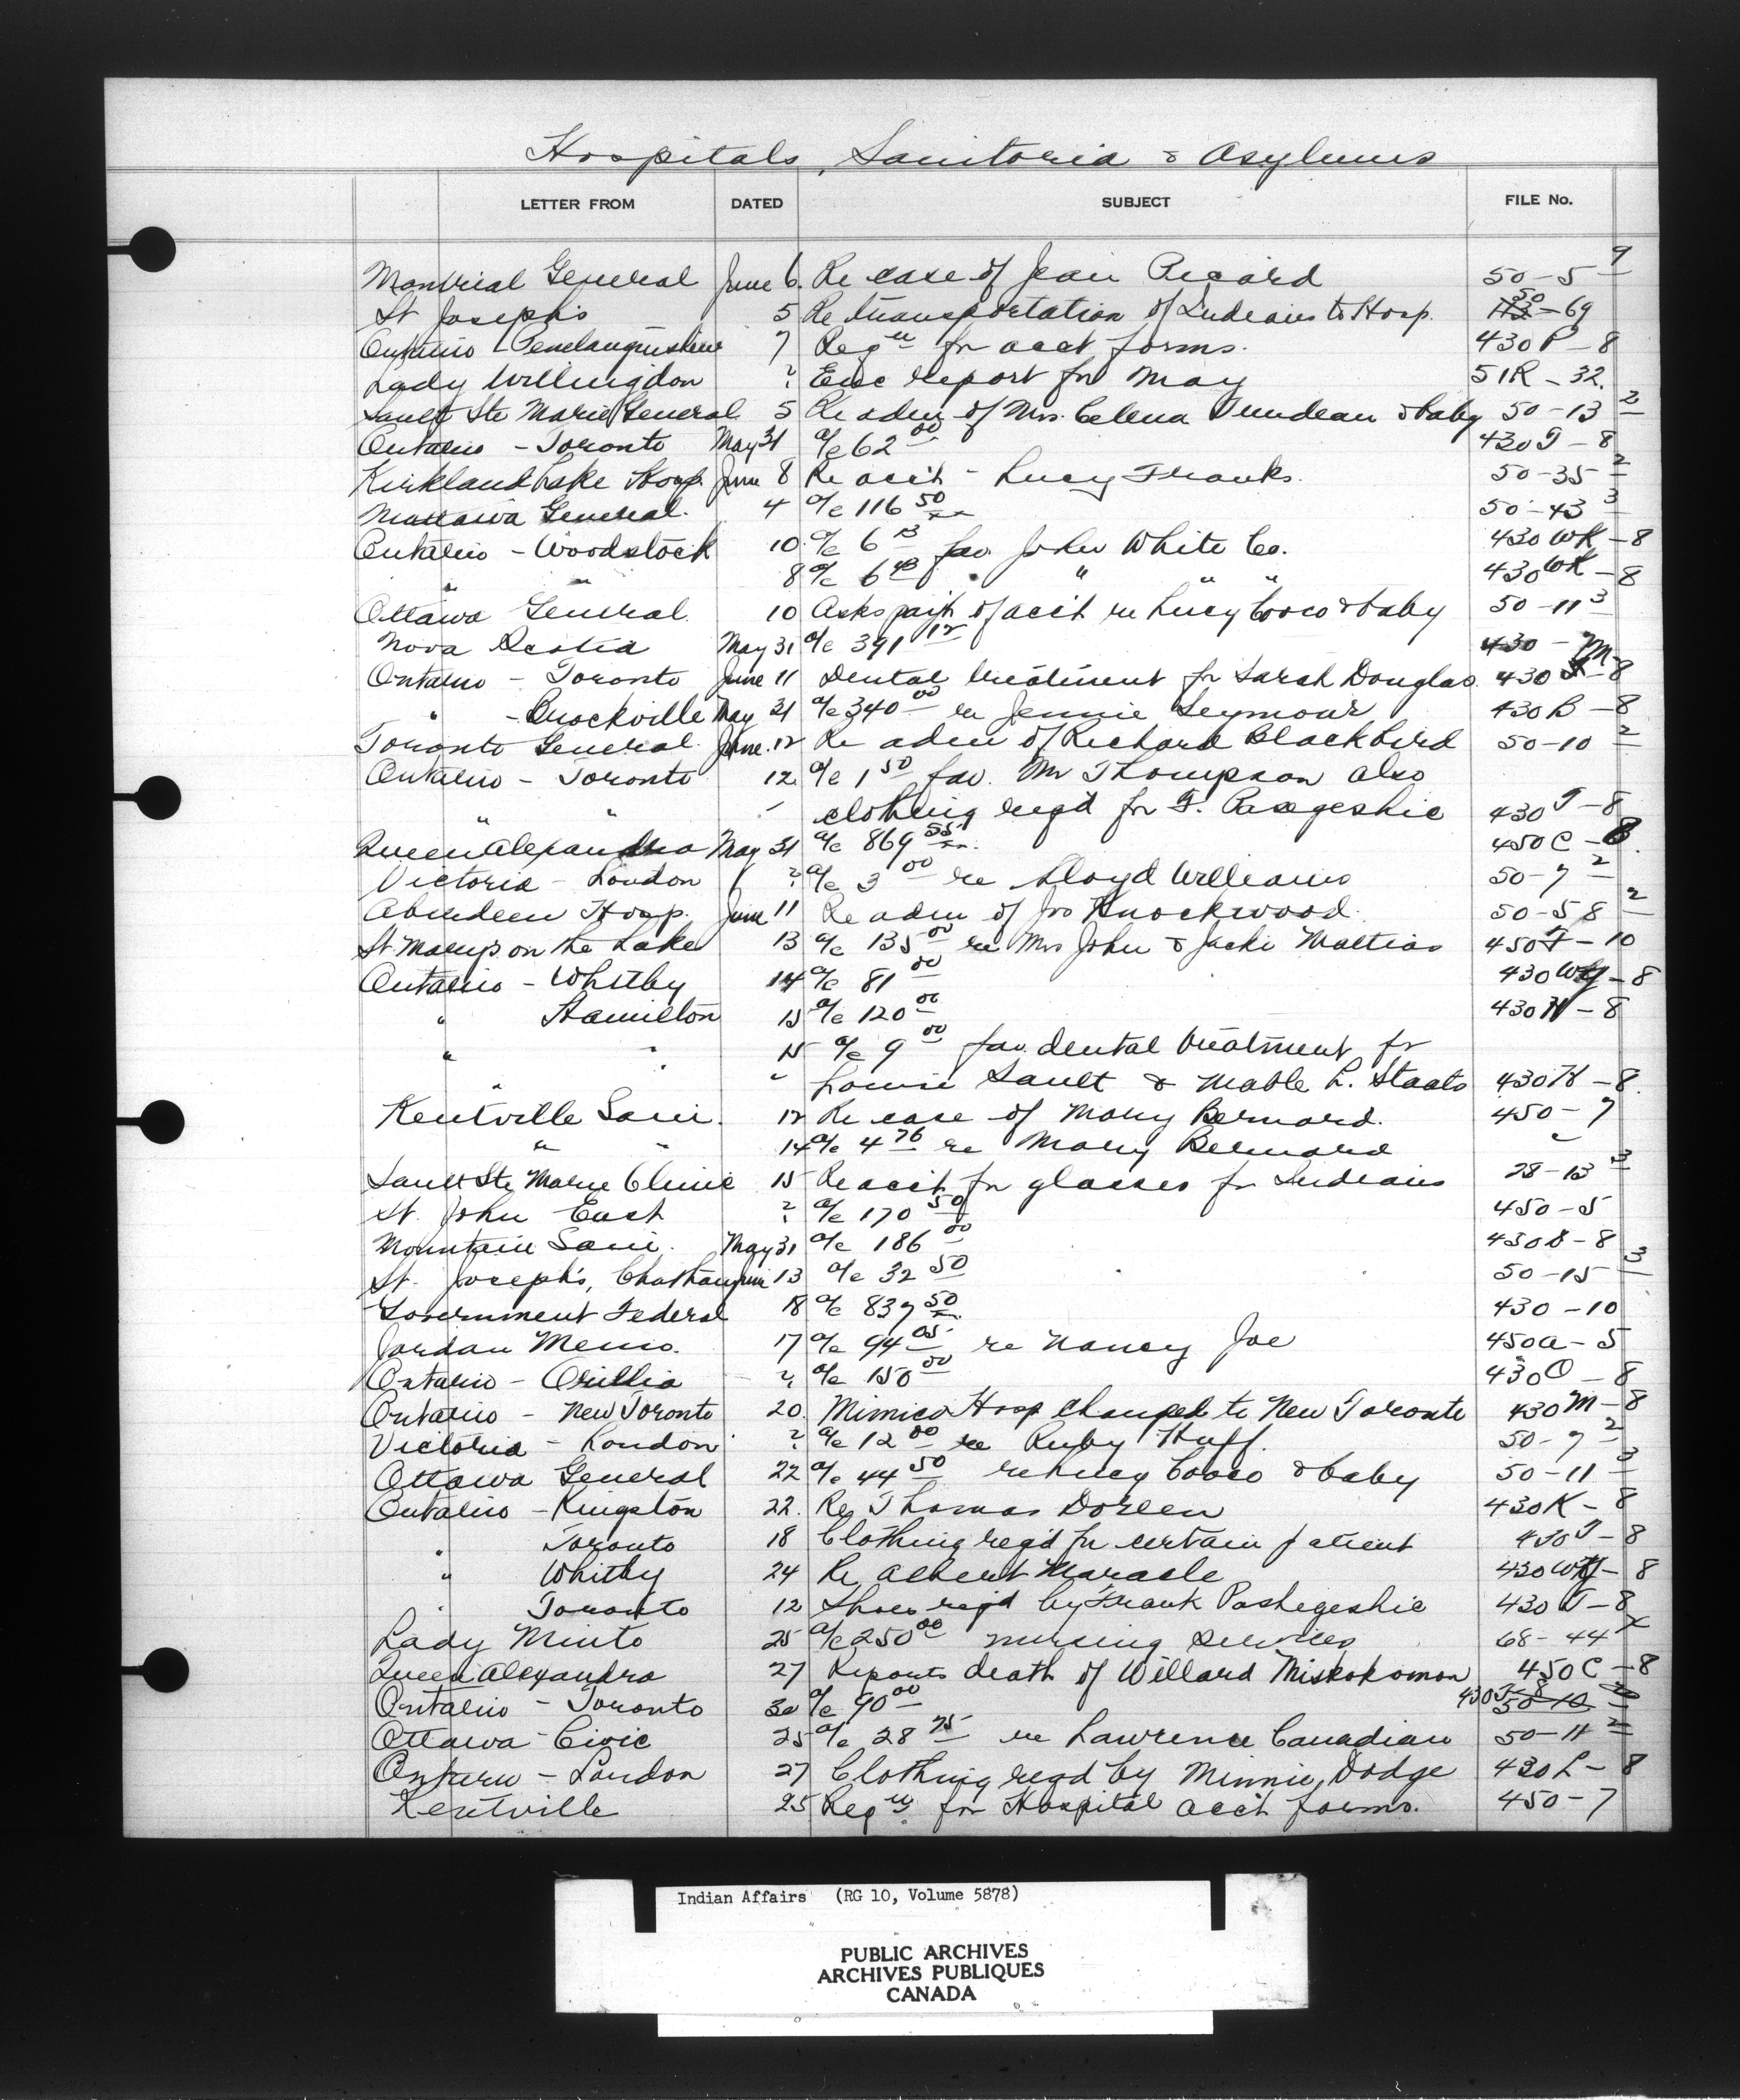 Hospitals, Sanitoria & Asylums
LETTER FROM DATED SUBJECT FILE No.
Montreal General June 6. Re case of Jean Picard 50-5 9
St Joseph's 5 Re transportation of Indians to Hosp. 50-69
Ontario - Penetanguishene 7 Reqn for acct forms. 430P-8
Lady Willingdon ? Enc report for May 51R-32.
Sault Ste Marie General 5 Re adm of Mrs. Celena Trundeau & baby 50-13 2
Ontario - Toronto May 31 a/c 62 00 430T-8
Kirkland Lake Hosp. June 8 Re acct - Lucy Franks. 50-35 2
Mattawa General. 4 a/c 116 50 50-43 3
Ontario - Woodstock 10 a/c 6 fav. John White Co. 430WK-8
" " 8 a/c 6 " " " 430WK-8
Ottawa General. 10 Asks paym't of acct re Lucy Cooco & baby 50-11 3
Nova Scotia May 31 a/c 391 12 430 -
Ontario - Toronto June 11 Dental treatment for Sarah Douglas. 430 -8
" - Brockville May 31 a/c 340 00 re Jennie Seymour 430B-8
Toronto General. June. 12 Re adm of Richard Blackbird 50-10 2
Ontario - Toronto 12. a/c 1 50 fav. Mr Thompson also
" " clothing reqd for F. Pasegeshic 430T-8
Queen Alexandra May 31 a/c 869 55 450C-8.
Victoria - London ? a/c 3 00 re Lloyd Williams 50-7 2
Aberdeen Hosp. June 11 Re adm of Jno Knockwood. 50-58 2
St. Mary's on the Lake 13 a/c 135 00 re Mrs John & Jacki Mattias 450F-10
Ontario - Whitby 14 a/c 81 00 430WY-8
" Hamilton 15 a/c 120 00 430H-8
" " 15 a/c 9 00 fav. dental treatment for
" Louise Sault & Mable L. Staats 430H-8.
Kentville Sani. 12 Re case of Mary Bernard. 450-7
" " 14 a/c 4 76 re Mary Bernard "
Sault Ste Marie Clinic 15 Re acct for glasses for Indians 28-13 3
St. John East ? a/c 170 50 450-5
Mountain Sani. May 31 a/c 186 00 450B-8
St. Joseph's, Chatham June 13 a/c 32 50 50-15 3
Government Federal 18 a/c 837 50 430-10
Jordan Memo. 17 a/c 94 05 re Nancy Joe 450A-5
Ontario - Orillia ? a/c 150 00 430O-8
Ontario - New Toronto 20. Mimico Hosp changed to New Toronto 430M-8
Victoria - London ? a/c 12 00 re Ruby Huff. 50-7 2
Ottawa General 22 a/c 44 50 re Lucy Cooco & baby 50-11 3
Ontario - Kingston 22. Re Thomas Doreen 430K-8
" Toronto 18 Clothing reqd for certain patient 430T-8
" Whitby 24 Re Albert Maracle 430WY-8
" Toronto 12 Shoes reqd by Frank Pashegeshic 430T-8
Lady Minto 25 a/c 250 00 nursing services 68-44 x
Queen Alexandra 27 Reports death of Willard Miskokomon 450C-8
Ontario - Toronto 30 a/c 90 00 430T-8 50-10
Ottawa - Civic 25 a/c 28 75 re Lawrence Canadian 50-11 2
Ontario - London 27 Clothing reqd by Minnie Dodge 430L-8
Kentville 25 Reqn for Hospital acct forms. 450-7
Indian Affairs (RG 10, Volume 5878)
PUBLIC ARCHIVES
ARCHIVES PUBLIQUES
CANADA